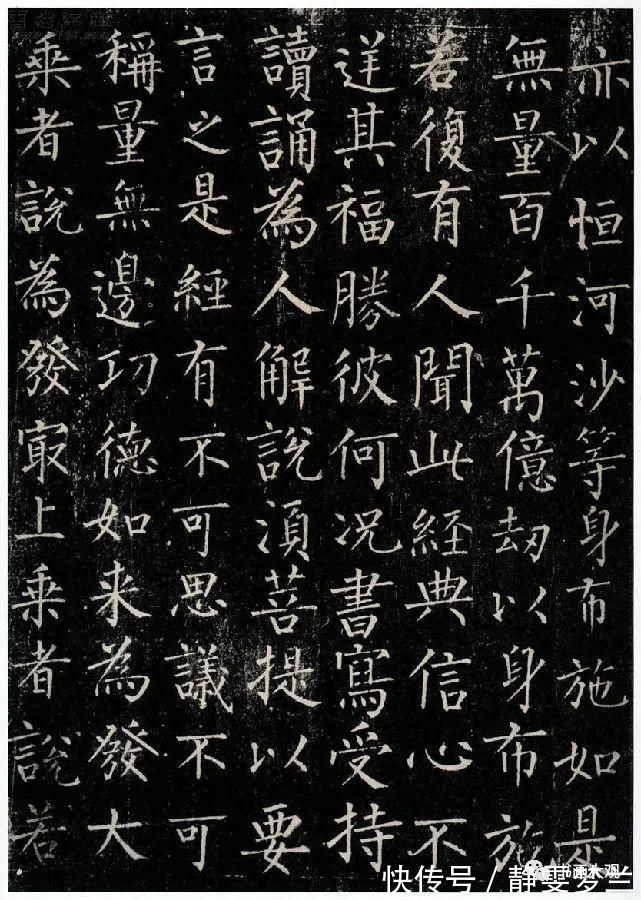 亦以恒河沙等身布施如是
無量百千萬億劫以身布施
若復有人聞此經典信心不
逆其福勝彼何况書寫受持
讀誦為人解說須菩提以要
言之是經有不可思議不可
稱量無邊功德如来為發大
乗者說為發冣上乗者說若
书画大观
快传号 / 静斐